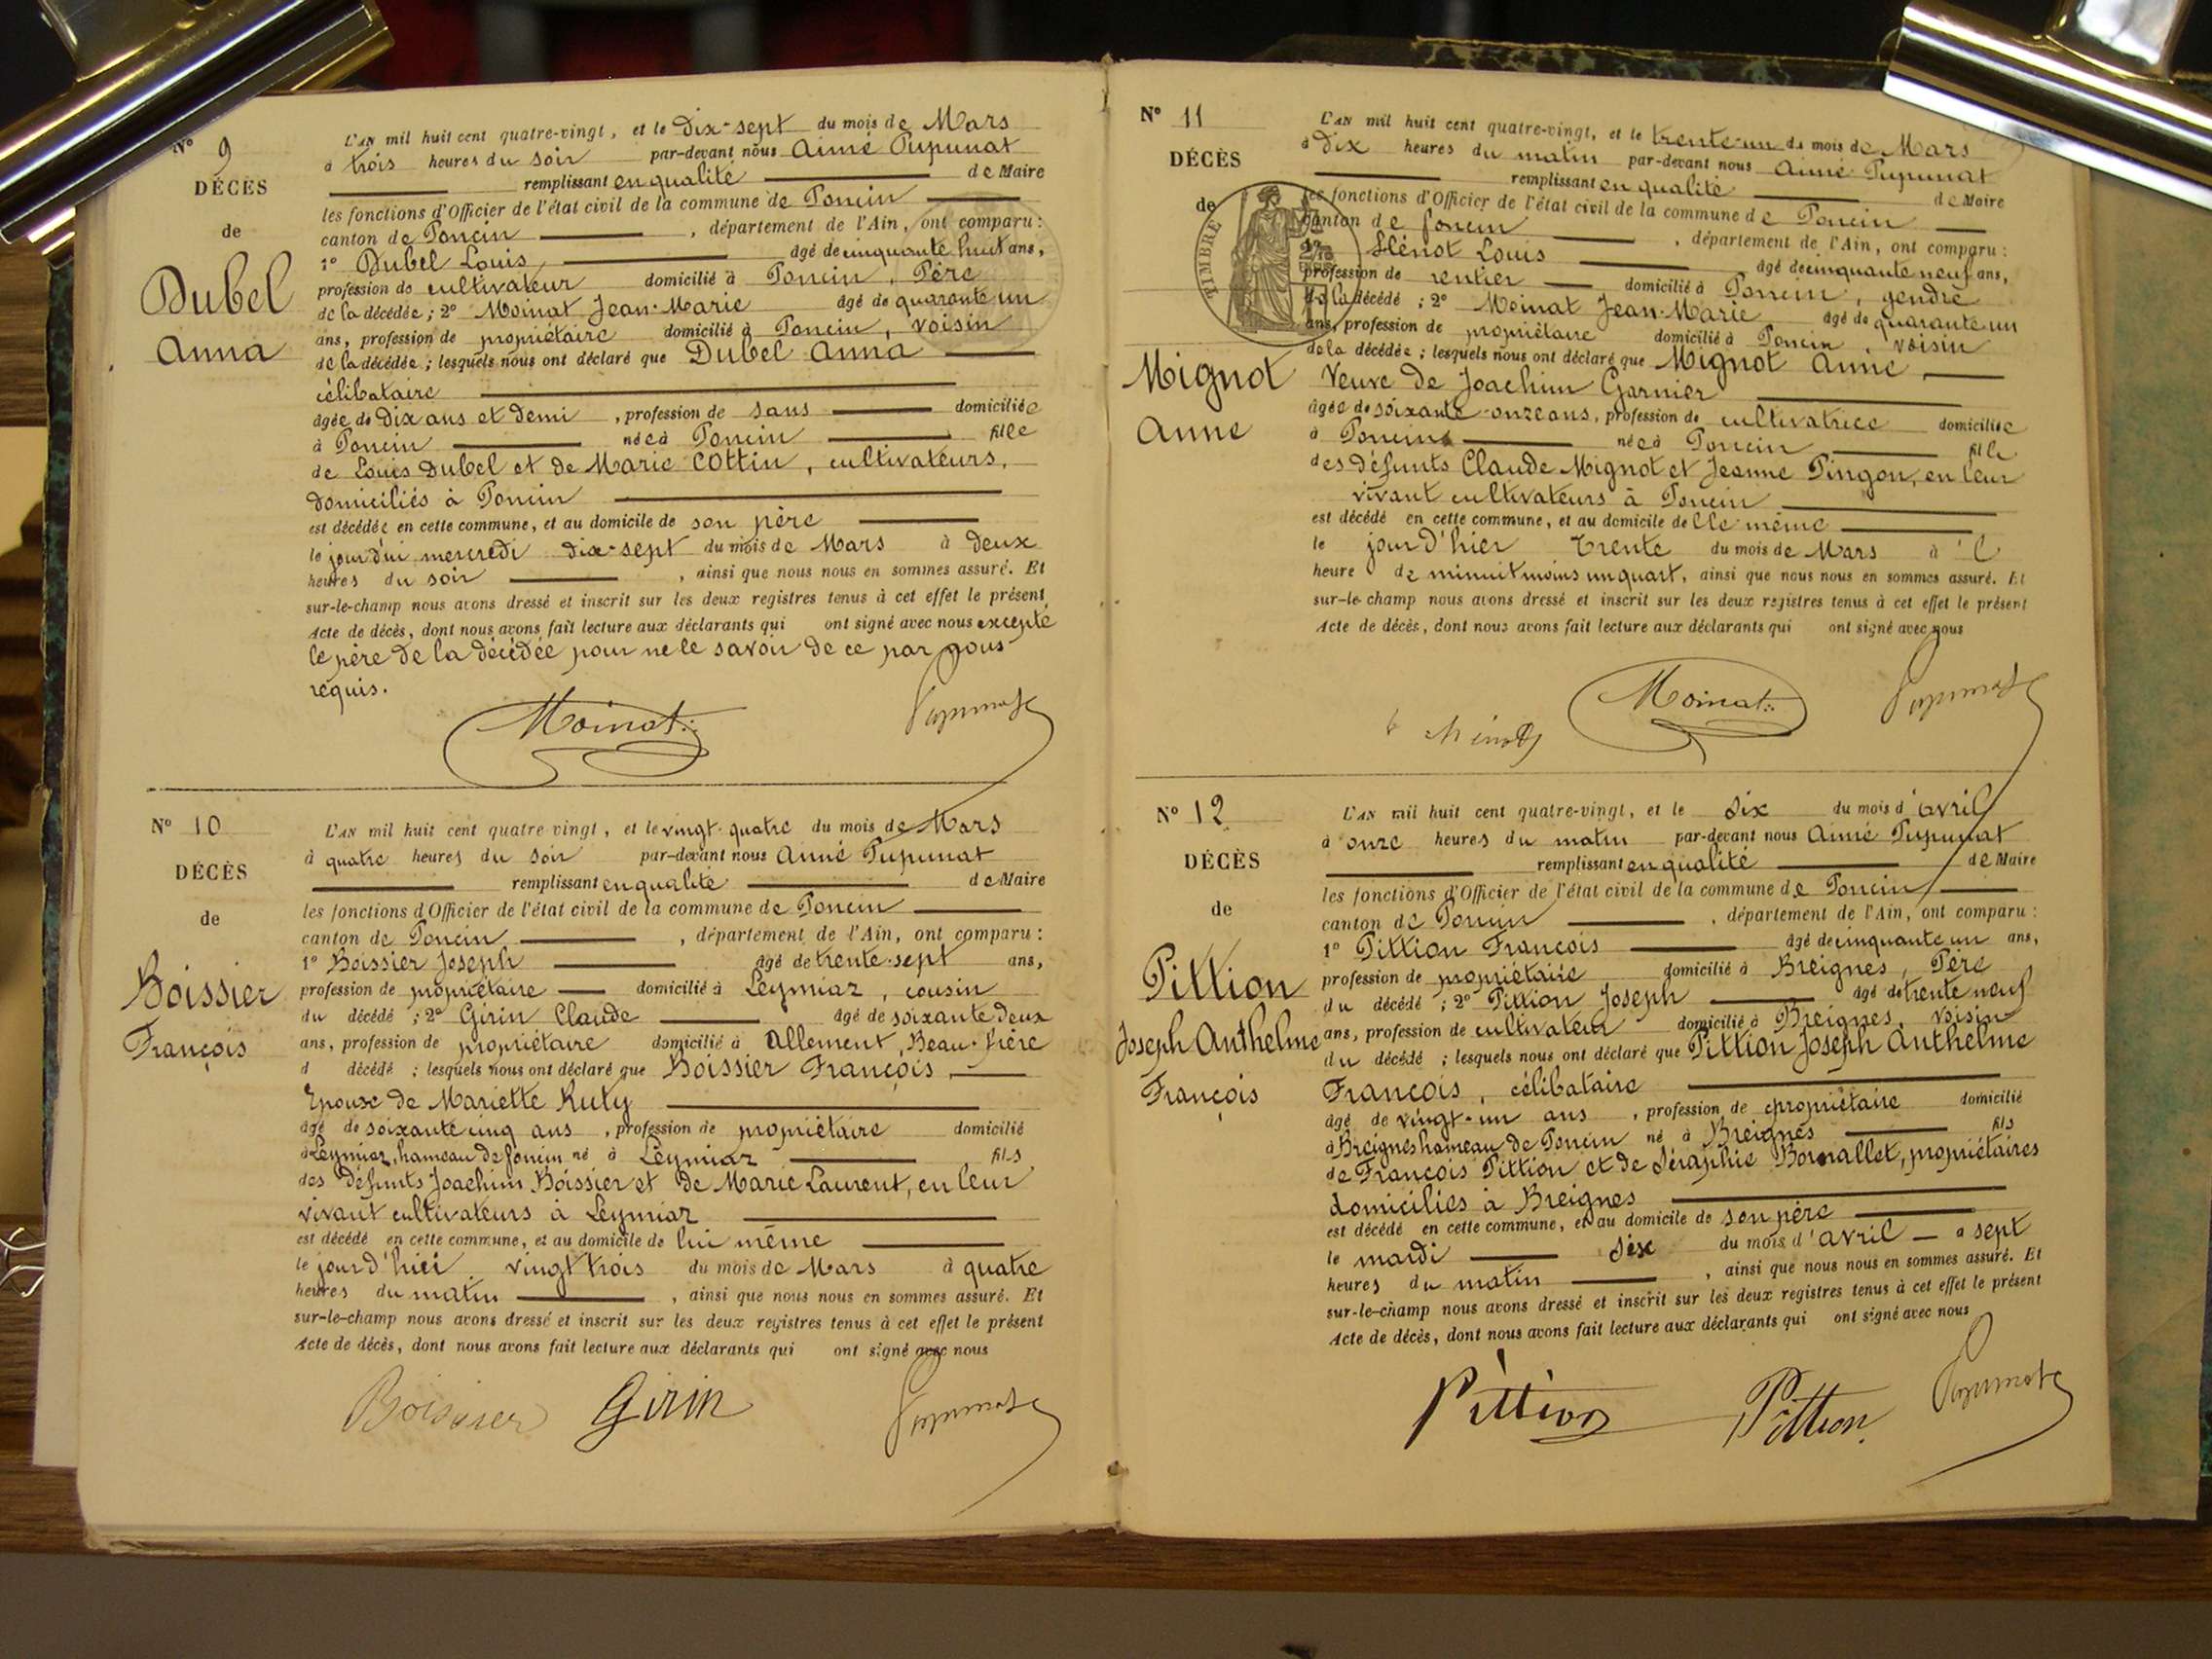 N° 9
DÉCÈS
de
Dubel
Anna
L'AN mil huit cent quatre-vingt, et le dix-sept du mois de Mars
à trois heures du soir par-devant nous Aimé Pupunat
remplissant en qualité de Maire
les fonctions d'Officier de l'état civil de la commune de Poncin
canton de Poncin, département de l'Ain, ont comparu :
1° Dubel Louis, âgé de cinquante huit ans,
profession de cultivateur domicilié à Poncin, Père
de la décédée ; 2° Moinat Jean-Marie âgé de quarante un
ans, profession de propriétaire domicilié à Poncin, voisin
de la décédée ; lesquels nous ont déclaré que Dubel Anna
célibataire
âgée de dix ans et demi, profession de sans domiciliée
à Poncin née à Poncin fille
de Louis Dubel et de Marie Cottin, cultivateurs,
domiciliés à Poncin
est décédée en cette commune, et au domicile de son père
le jourd'ui mercredi dix-sept du mois de Mars à deux
heures du soir, ainsi que nous nous en sommes assuré. Et
sur-le-champ nous avons dressé et inscrit sur les deux registres tenus à cet effet le présent
Acte de décès, dont nous avons fait lecture aux déclarants qui ont signé avec nous excepté
le père de la décédée pour ne le savoir de ce par nous
requis.
Moinat Pupunat
N° 10
DÉCÈS
de
Boissier
François
L'AN mil huit cent quatre vingt, et le vingt-quatre du mois de Mars
à quatre heures du soir par-devant nous Aimé Pupunat
remplissant en qualité de Maire
les fonctions d'Officier de l'état civil de la commune de Poncin
canton de Poncin, département de l'Ain, ont comparu :
1° Boissier Joseph âgé de trente-sept ans,
profession de propriétaire domicilié à Leymiaz, cousin
du décédé ; 2° Girin Claude âgé de soixante deux
ans, profession de propriétaire domicilié à Allement, Beau-frère
d décédé ; lesquels nous ont déclaré que Boissier François,
Epouse de Mariette Ruty
âgé de soixante cinq ans, profession de propriétaire domicilié
à Leymiaz, hameau de Poncin né à Leymiaz fils
des défunts Joachim Boissier et de Marie Laurent, en leur
vivant cultivateurs à Leymiaz
est décédé en cette commune, et au domicile de lui même
le jour d'hier vingt trois du mois de Mars à quatre
heures du matin, ainsi que nous nous en sommes assuré. Et
sur-le-champ nous avons dressé et inscrit sur les deux registres tenus à cet effet le présent
Acte de décès, dont nous avons fait lecture aux déclarants qui ont signé avec nous
Boissier Girin Pupunat
N° 11
DÉCÈS
de
TIMBRE
Mignot
Anne
L'AN mil huit cent quatre-vingt, et le trente-un du mois de Mars
à dix heures du matin par-devant nous Aimé Pupunat
remplissant en qualité de Maire
les fonctions d'Officier de l'état civil de la commune de Poncin
canton de Poncin, département de l'Ain, ont comparu :
Hénot Louis âgé de cinquante neuf ans,
profession de rentier domicilié à Poncin, gendre
de la décédé ; 2° Moinat Jean-Marie âgé de quarante un
ans, profession de propriétaire domicilié à Poncin, voisin
de la décédée ; lesquels nous ont déclaré que Mignot Anne,
Veuve de Joachim Garnier
âgée de soixante-onze ans, profession de cultivatrice domiciliée
à Poncin née à Poncin fille
des défunts Claude Mignot et Jeanne Pingon, en leur
vivant cultivateurs à Poncin
est décédé en cette commune, et au domicile de elle même
le jour d'hier trente du mois de Mars à l
heure de minuit moins un quart, ainsi que nous nous en sommes assuré. Et
sur-le-champ nous avons dressé et inscrit sur les deux registres tenus à cet effet le présent
Acte de décès, dont nous avons fait lecture aux déclarants qui ont signé avec nous
Moinat Pupunat
N° 12
DÉCÈS
de
Pittion
Joseph Anthelme
François
L'AN mil huit cent quatre-vingt, et le six du mois d'avril
à onze heures du matin par-devant nous Aimé Pupunat
remplissant en qualité de Maire
les fonctions d'Officier de l'état civil de la commune de Poncin
canton de Poncin, département de l'Ain, ont comparu :
1° Pittion François âgé de cinquante un ans,
profession de propriétaire domicilié à Breignes, Père
du décédé ; 2° Pittion Joseph âgé de trente neuf
ans, profession de cultivateur domicilié à Breignes, voisin
du décédé ; lesquels nous ont déclaré que Pittion Joseph Anthelme
François, célibataire
âgé de vingt-un ans, profession de propriétaire domicilié
à Breignes hameau de Poncin né à Breignes fils
de François Pittion et de Séraphie propriétaires
domiciliés à Breignes
est décédé en cette commune, et au domicile de son père
le mardi six du mois d'avril à sept
heures du matin, ainsi que nous nous en sommes assuré. Et
sur-le-champ nous avons dressé et inscrit sur les deux registres tenus à cet effet le présent
Acte de décès, dont nous avons fait lecture aux déclarants qui ont signé avec nous
Pittion Pittion Pupunat